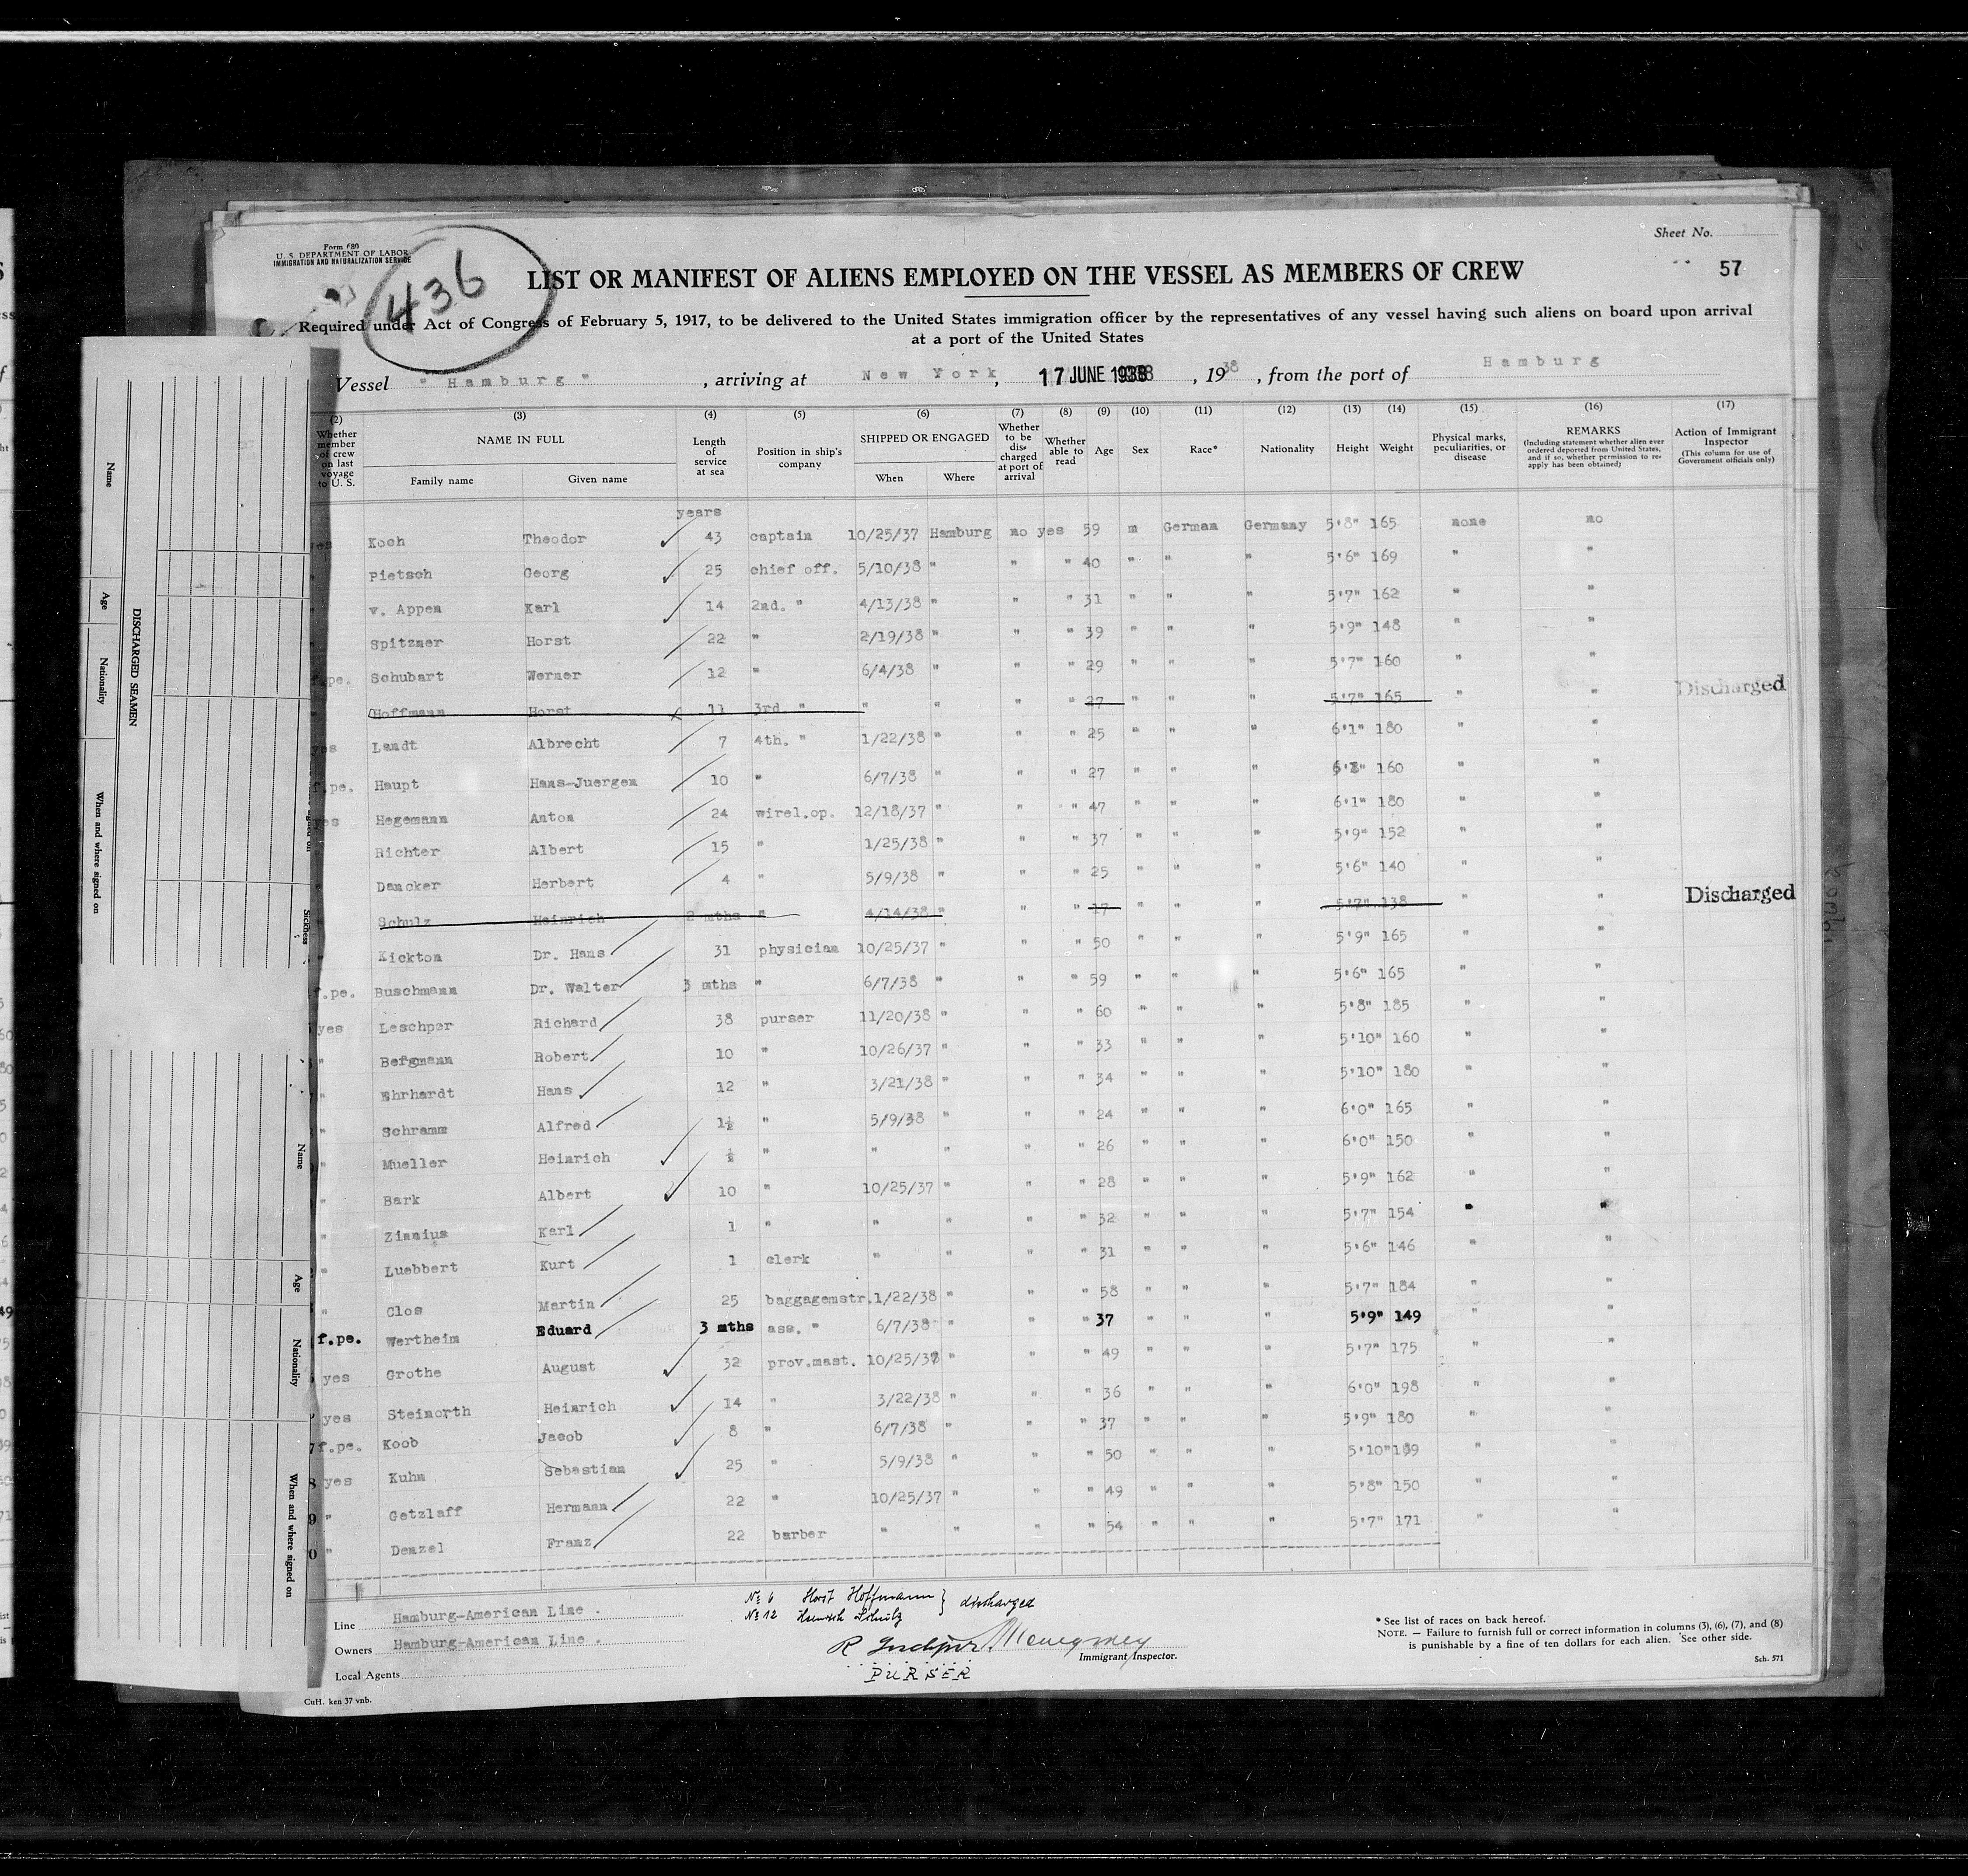 Form 680
U. S. DEPARTMENT OF LABOR
IMMIGRATION AND NATURALIZATION SERVICE
436
Sheet No.
57
LIST OR MANIFEST OF ALIENS EMPLOYED ON THE VESSEL AS MEMBERS OF CREW
Required under Act of Congress of February 5, 1917, to be delivered to the United States immigration officer by the representatives of any vessel having such aliens on board upon arrival
at a port of the United States
Vessel "Hamburg", arriving at New York, 17 JUNE 1938, 1938, from the port of Hamburg
(2) (3) (4) (5) (6) (7) (8) (9) (10) (11) (12) (13) (14) (15) (16) (17)
Whether member of crew on last voyage to U. S. | NAME IN FULL | Family name | Given name | Length of service at sea | Position in ship's company | SHIPPED OR ENGAGED | When | Where | Whether to be discharged at port of arrival | Whether able to read | Age | Sex | Race* | Nationality | Height | Weight | Physical marks, peculiarities, or disease | REMARKS (Including statement whether alien ever ordered deported from United States, and if so, whether permission to reapply has been obtained) | Action of Immigrant Inspector (This column for use of Government officials only)
years
yes Koch Theodor 43 captain 10/25/37 Hamburg no yes 59 m German Germany 5'8" 165 none no
" Pietsch Georg 25 chief off. 5/10/38 " " " 40 " " " 5'6" 169 " "
" v. Appen Karl 14 2nd. " 4/13/38 " " " 31 " " " 5'7" 162 " "
" Spitzner Horst 22 " 2/19/38 " " " 39 " " " 5'9" 148 " "
f.pe. Schubart Werner 12 " 6/4/38 " " " 29 " " " 5'7" 160 " "
" Hoffmann Horst 11 3rd. " " " " " 27 " " " 5'7" 165 " " Discharged
yes Landt Albrecht 7 4th. " 1/22/38 " " " 25 " " " 6'1" 180 " "
f.pe. Haupt Hans-Juergen 10 " 6/7/38 " " " 27 " " " 160 " "
yes Hegemann Anton 24 wirel.op. 12/18/37 " " " 47 " " " 6'1" 180 " "
" Richter Albert 15 " 1/25/38 " " " 37 " " " 5'9" 152 " "
" Dancker Herbert 4 " 5/9/38 " " " 25 " " " 5'6" 140 " "
" Schulz Heinrich 2 mths " 4/14/38 " " " 17 " " " 5'7" 138 " " Discharged
" Kickton Dr. Hans 31 physician 10/25/37 " " " 50 " " " 5'9" 165 " "
f.pe. Buschmann Dr. Walter 3 mths " 6/7/38 " " " 59 " " " 5'6" 165 " "
yes Leschper Richard 38 purser 11/20/38 " " " 60 " " " 5'8" 185 " "
" Bergmann Robert 10 " 10/26/37 " " " 33 " " " 5'10" 160 " "
" Ehrhardt Hans 12 " 3/21/38 " " " 34 " " " 5'10" 180 " "
" Schramm Alfred 1½ " 5/9/38 " " " 24 " " " 6'0" 165 " "
" Mueller Heinrich ½ " " " " " 26 " " " 6'0" 150 " "
" Bark Albert 10 " 10/25/37 " " " 28 " " " 5'9" 162 " "
" Zinnius Karl 1 " " " " " 32 " " " 5'7" 154 " "
" Luebbert Kurt 1 clerk " " " " 31 " " " 5'6" 146 " "
" Clos Martin 25 baggagemstr. 1/22/38 " " " 58 " " " 5'7" 184 " "
f.pe. Wertheim Eduard 3 mths ass. " 6/7/38 " " " 37 " " " 5'9" 149 " "
yes Grothe August 32 prov.mast. 10/25/37 " " " 49 " " " 5'7" 175 " "
yes Steinorth Heinrich 14 " 3/22/38 " " " 36 " " " 6'0" 198 " "
7 f.pe. Koob Jacob 8 " 6/7/38 " " " 37 " " " 5'9" 180 " "
8 yes Kuhn Sebastian 25 " 5/9/38 " " " 50 " " " 5'10" " "
9 " Getzlaff Hermann 22 " 10/25/37 " " " 49 " " " 5'8" 150 " "
0 " Denzel Franz 22 barber " " " " 54 " " " 5'7" 171 " "
No 6 Horst Hoffmann } discharged
No 12 Heinrich Schulz
Line Hamburg-American Line.
Owners Hamburg-American Line.
Local Agents
R Leschper
PURSER
Immigrant Inspector.
* See list of races on back hereof.
NOTE. — Failure to furnish full or correct information in columns (3), (6), (7), and (8)
is punishable by a fine of ten dollars for each alien. See other side.
Sch. 571
CuH. ken 37 vnb.
DISCHARGED SEAMEN
Name
Age
Nationality
When and where signed on
Sickness
Name
Age
Nationality
When and where signed on